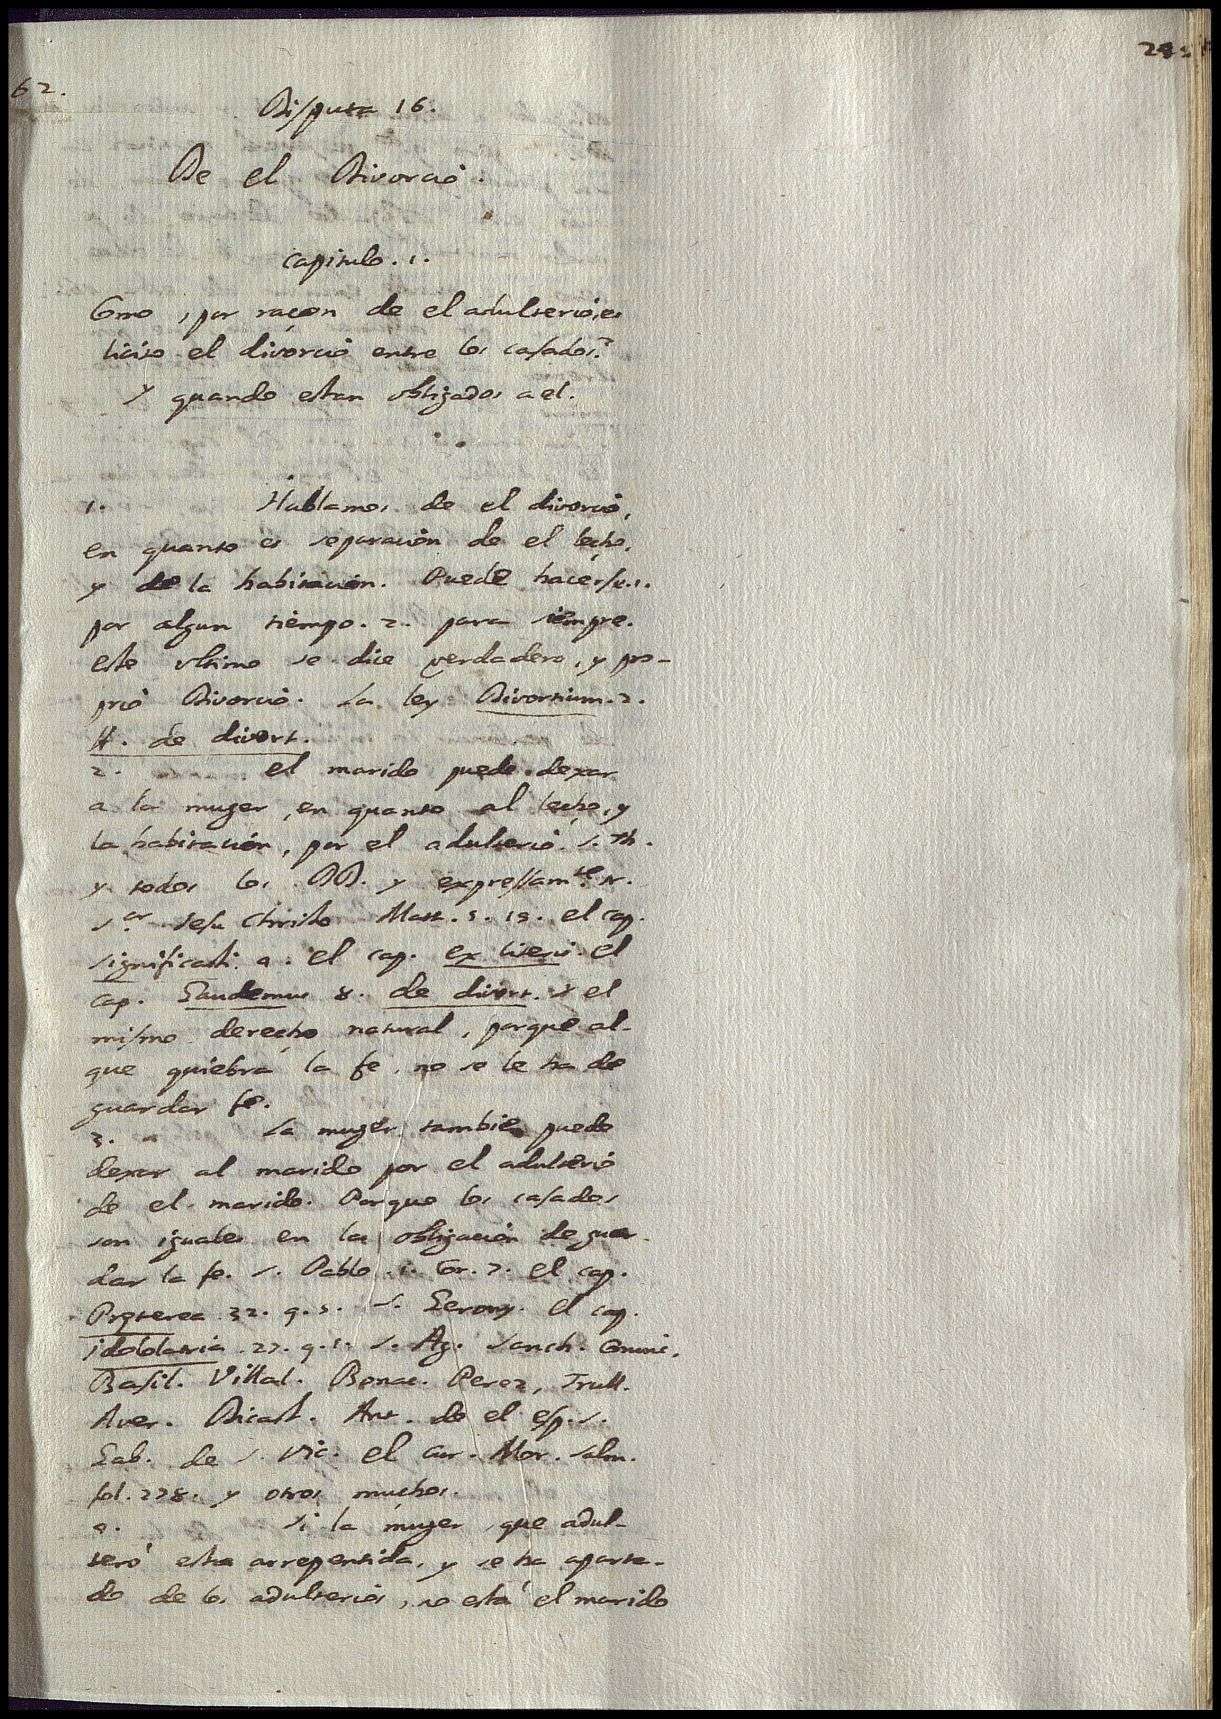 62.
Disputa 16.
De el Divorcio.
Capitulo. 1.
Como, por raçon de el adulterio, es
licito el divorcio entre los casados?
Y quando estan obligados a el.
1. Hablamos de el divorcio,
en quanto es separacion de el lecho,
y de la habitacion. Puede hacerse. 1.
por algun tiempo. 2. para siempre.
este ultimo se dice verdadero, y pro-
prio Divorcio. La ley Divortium. 2.
ff. de divort.
2. el marido puede dexar
a la muger, en quanto al lecho, y
la habitacion, por el adulterio. S. Th.
y todos los DD. y expressam.te N.
S.or Jesu Christo Matt. 5. 19. el cap.
significasti. 4. el cap. ex literis. el
cap. Gaudemus 8. de divort. Y el
mismo derecho natural, porque al-
que quiebra la fe, no se le ha de
guardar fe.
3. La muger tambien puede
dexar al marido por el adulterio
de el marido. Porque los casados
son iguales en la obligacion de guar-
dar la fe. S. Pablo. 1. Cor. 7. el cap.
Preterea 32. q. 5. S. Gerony. el cap.
idololatria. 27. q. 1. S. Ag. Sanch. Coninc.
Basil. Villal. Bonac. Perez, Trull.
Aver. Dicast. Ant. de el esp. S.
Gab. de S. Vic. el cur. Mor. Salm.
fol. 228. y otros muchos.
4. Si la muger, que adul-
teró esta arrepentida, y se ha aparta-
do de los adulterios, no está el marido